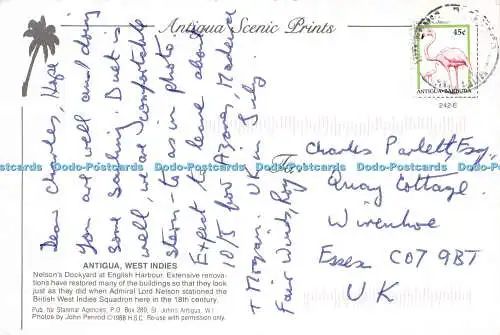 Antigua Scenic Prints
45c
ANTIGUA & BARBUDA
242-E
Dear Charles, Hope
You are well and doing
some sailing. Duet is
well, we are comfortable
Stern-to as in photo
Expect to leave about
10/5 for Azores, Madeira
+ UK in July
Fair Winds, Roy
To
Charles Parlett, Esq,
Quay Cottage
Wivenhoe
Essex CO7 9BT
UK
ANTIGUA, WEST INDIES
Nelson's Dockyard at English Harbour. Extensive renova-
tions have restored many of the buildings so that they look
just as they did when Admiral Lord Nelson stationed the
British West Indies Squadron here in the 18th century.
Pub. Stanmar Agencies, P.O. Box 289, St. Johns Antigua, W.I.
Photos by John Penrod ©1988 H.S.C. Re-use with permission only.
Dodo-Postcards Dodo-Postcards Dodo-Postcards Dodo-Postcards Dodo-Postcards
Dodo-Postcards Dodo-Postcards Dodo-Postcards Dodo-Postcards Dodo-Postcards